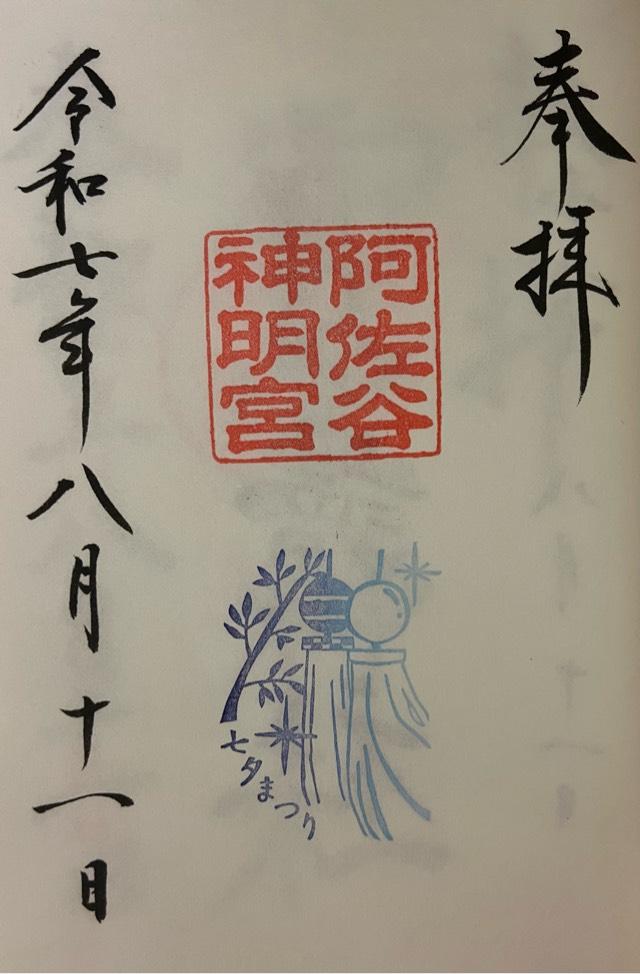 奉拝
阿佐谷
神明宮
七夕まつり
令和七年八月十一日